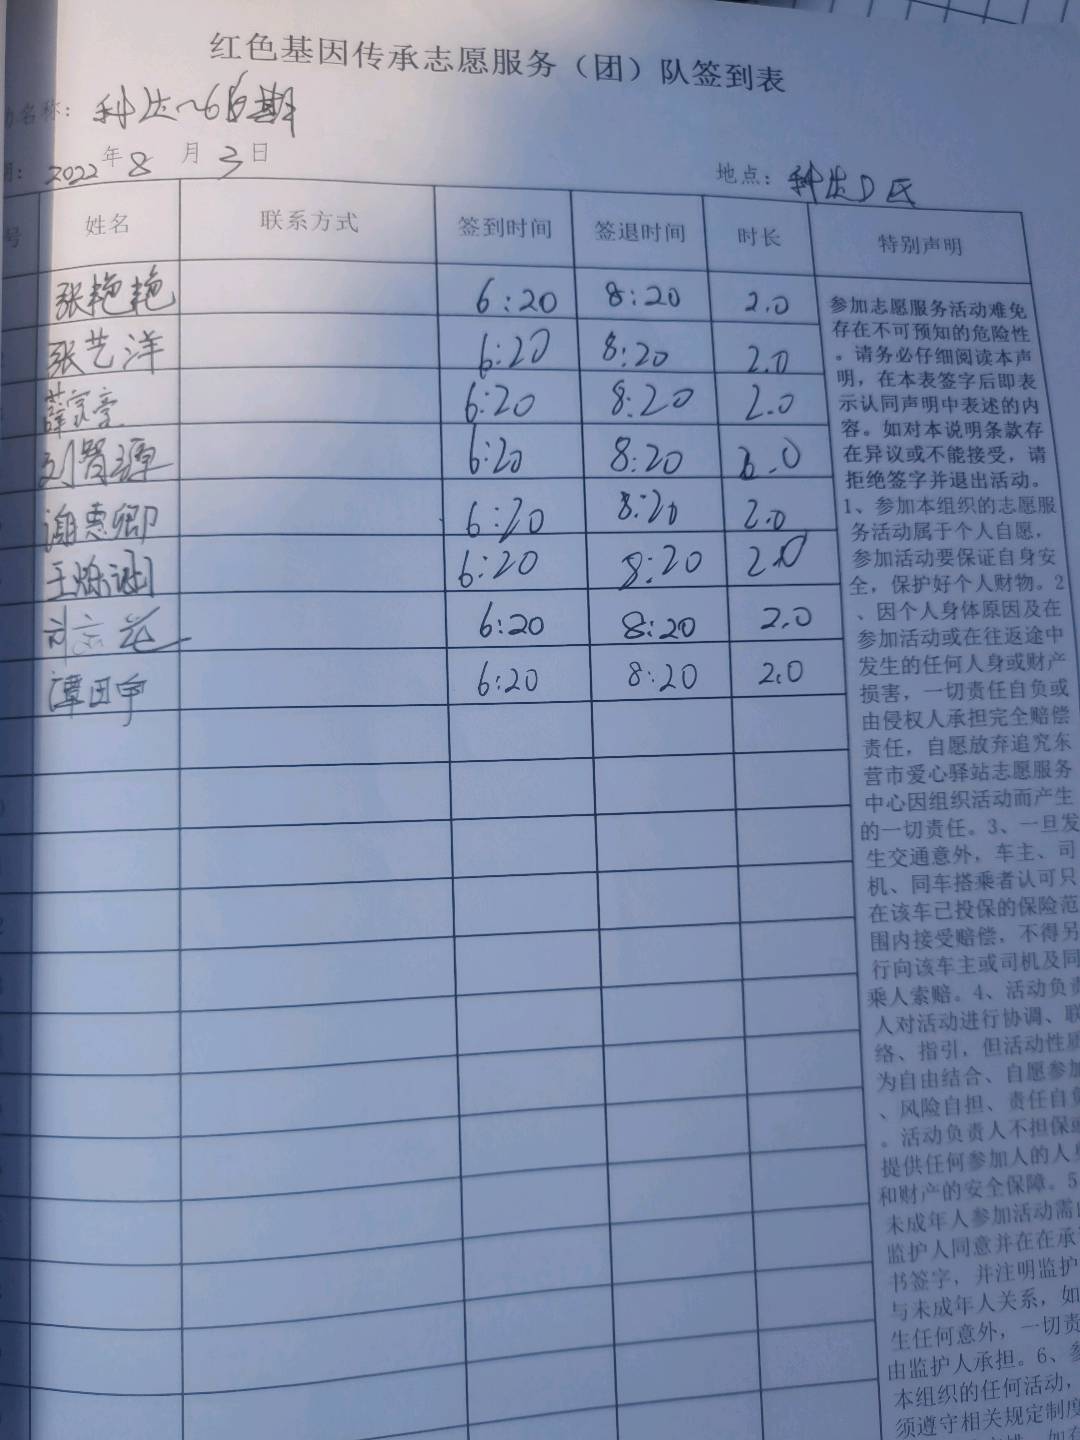 红色基因传承志愿服务（团）队签到表
名称： 科达~66期
2022年8月3日
地点：科达D区
号 姓名 联系方式 签到时间 签退时间 时长 特别声明
张艳艳 6:20 8:20 2.0
张艺洋 6:20 8:20 2.0
薛 6:20 8:20 2.0
刘 6:20 8:20 2.0
谢惠卿 6:20 8:20 2.0
王 6:20 8:20 2.0
6:20 8:20 2.0
谭田甲 6:20 8:20 2.0
参加志愿服务活动难免
存在不可预知的危险性
。请务必仔细阅读本声
明，在本表签字后即表
示认同声明中表述的内
容。如对本说明条款存
在异议或不能接受，请
拒绝签字并退出活动。
1、参加本组织的志愿服
务活动属于个人自愿，
参加活动要保证自身安
全，保护好个人财物。2
、因个人身体原因及在
参加活动或在往返途中
发生的任何人身或财产
损害，一切责任自负或
由侵权人承担完全赔偿
责任，自愿放弃追究东
营市爱心驿站志愿服务
中心因组织活动而产生
的一切责任。3、一旦发
生交通意外，车主、司
机、同车搭乘者认可只
在该车已投保的保险范
围内接受赔偿，不得另
行向该车主或司机及同
乘人索赔。4、活动负责
人对活动进行协调、联
络、指引，但活动性质
为自由结合、自愿参加
、风险自担、责任自负
。活动负责人不担保或
提供任何参加人的人身
和财产的安全保障。5
未成年人参加活动需
监护人同意并在在承
书签字，并注明监护
与未成年人关系，如
生任何意外，一切责
由监护人承担。6、参
本组织的任何活动，
须遵守相关规定制度